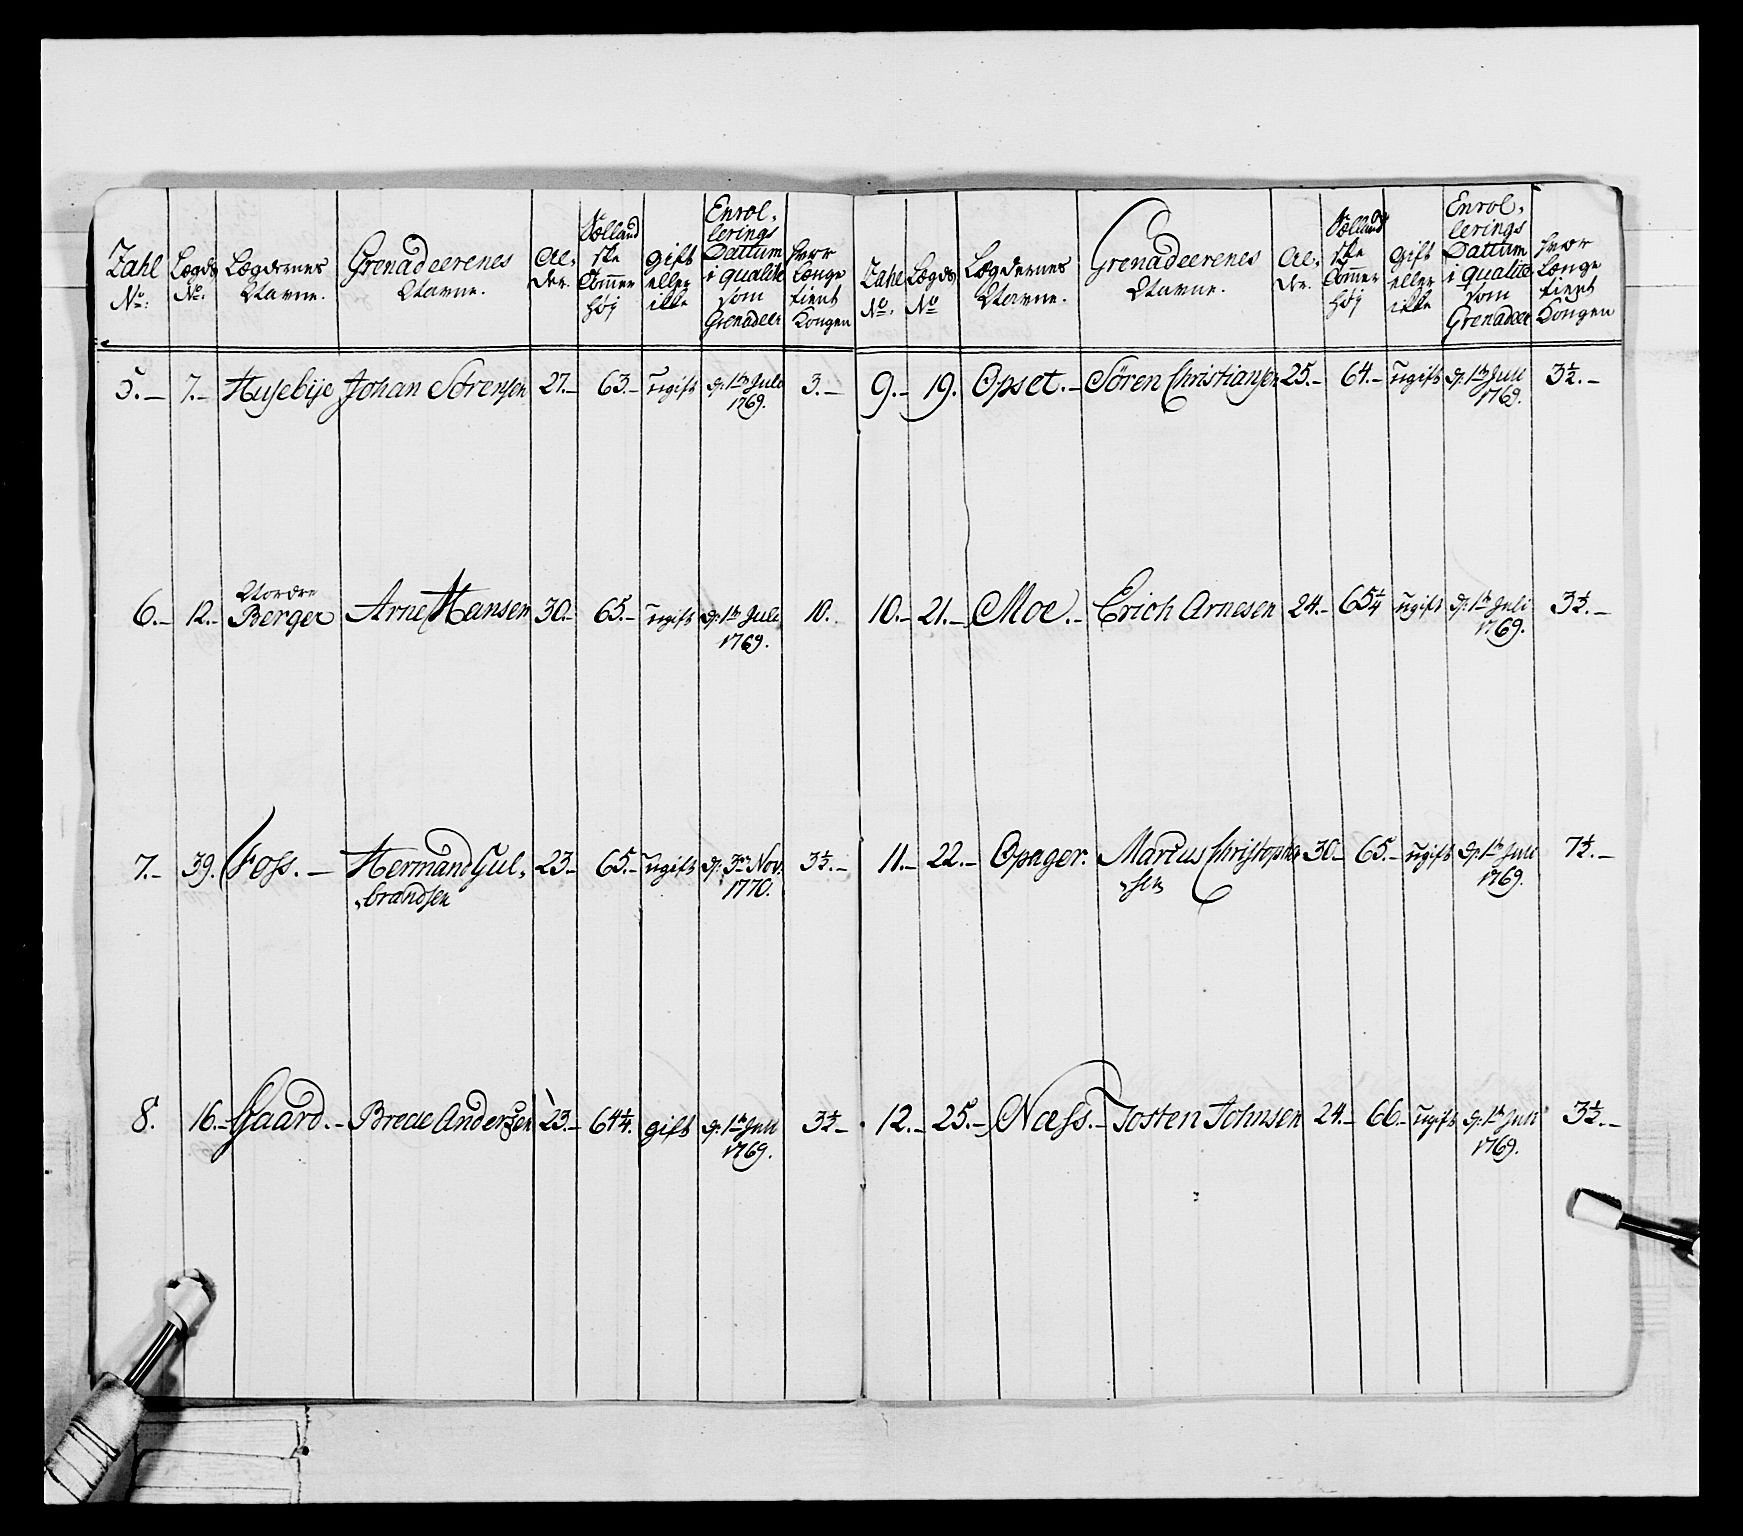 Zahl No: Lægds No: Lægdernes Navne. Grenadeerenes Navne. Al, der. Hollandske Tommer høj gift eller ikke Enrollerings Dattum i qualite som Grenadeer hvor Længe tient Kongen
5. 7. Husebije Johan Sörensen 27. 63. ugift d: 1ste Juli 1769. 3.
6. 12. Nordre Berger Arne Hansen 30. 65. ugift d: 1ste Juli 1769. 10.
7. 39. Foss. Hermand Gul,
brandsen 23. 65. ugift d: 3die Nov. 1770. 3½.
8. 16. Gaard. Brede Andersen 23. 64¼. gift d: 1ste Juli 1769. 3½
Zahl No. Lægds No Lægdernes Navne. Grenadeerenes Navne. Al, der. Hollandske Tommer høj gift eller ikke Enrollerings Dattum i qualite som Grenadeer hvor Længe tient Kongen
9. 19. Opset. Sören Christiansen 25. 64. ugift d: 1ste Juli 1769. 3½.
10. 21. Moe. Erich Arnesen 24. 65¼ ugift d: 1ste Juli 1769. 3½.
11. 22. Opager. Marcus Christopher
sen 30. 65. ugift d: 1ste Juli 1769. 7½.
12. 25. Næss. Tosten Johnsen 24. 66. ugift d: 1ste Juli 1769. 3½.